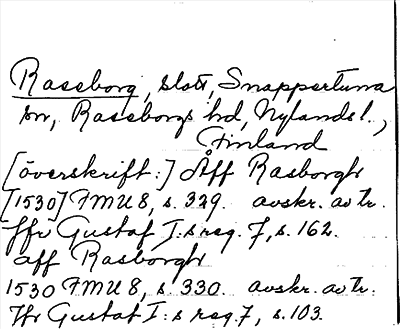 Raseborg, slott, Snappertuna
sn, Raseborgs hd, Nylands l.,
Finland
[överskrift:] Åff Rasborgh
[1530] FMU 8, s. 329. avskr. av tr.
Jfr Gustaf I:s reg. 7, s. 162.
aff Rasborgh
1530 FMU 8, s. 330. avskr. av tr.
Jfr Gustaf I:s reg. 7, s. 103.